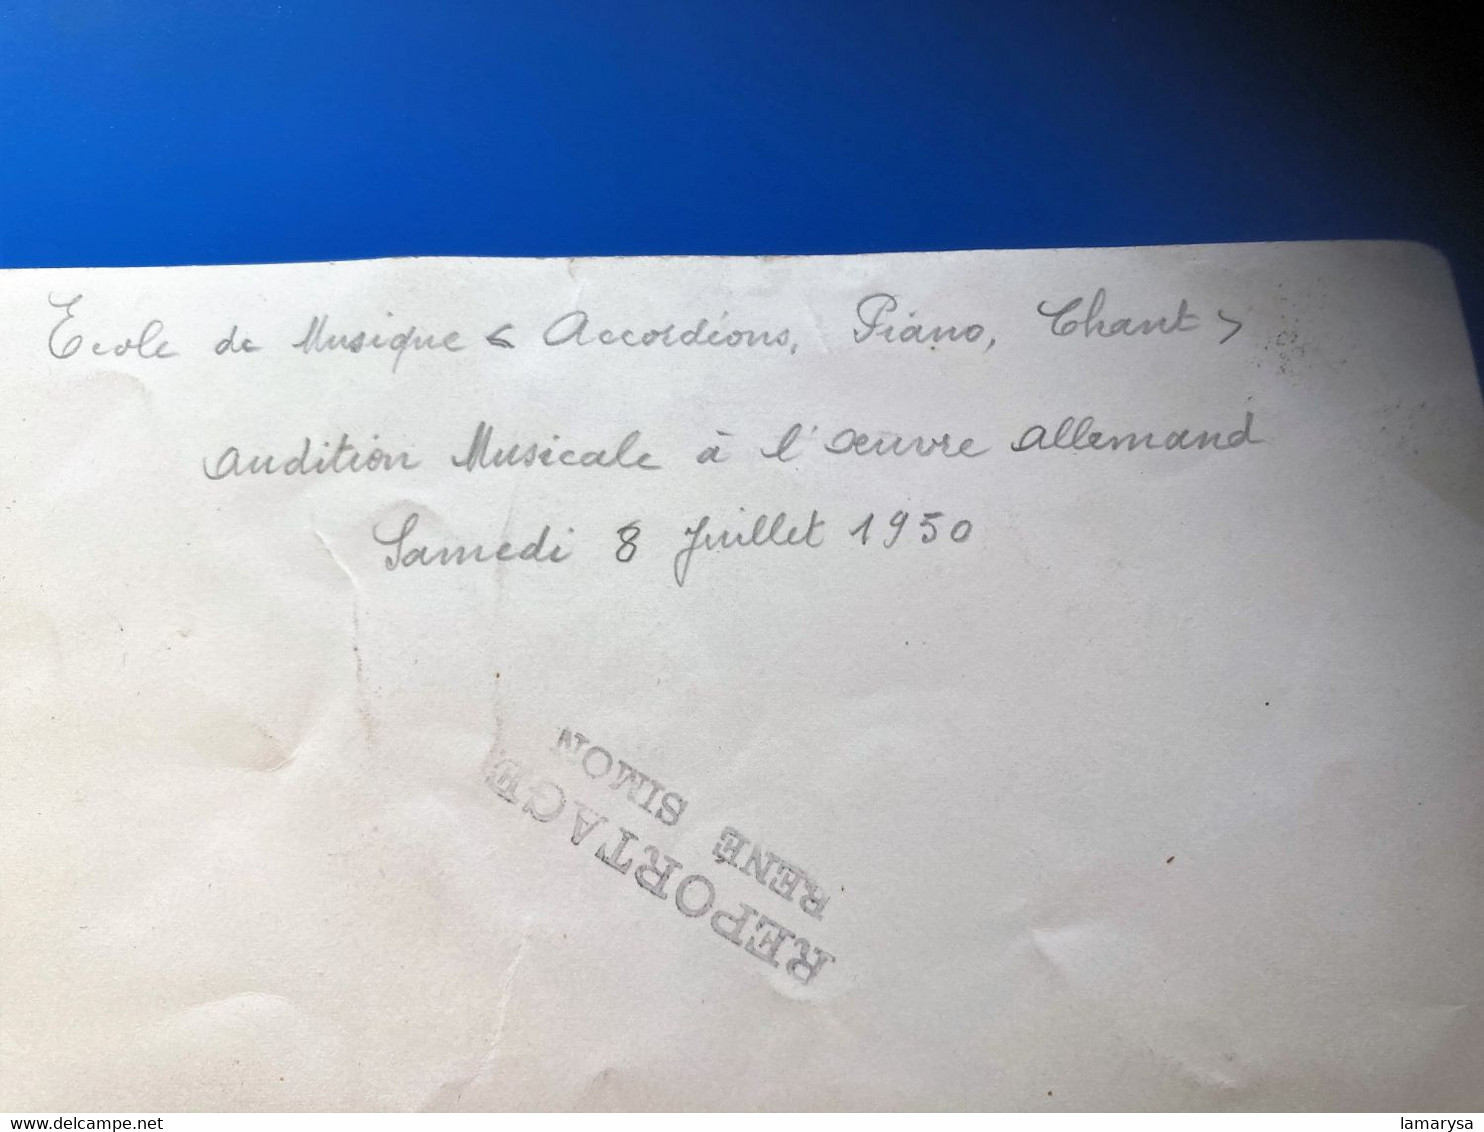 Ecole de Musique < Accordéons, Piano, Chant >
Audition Musicale à l'œuvre allemand
Samedi 8 Juillet 1950
REPORTAGE
RENÉ SIMON
delcampe.net
lamarysa